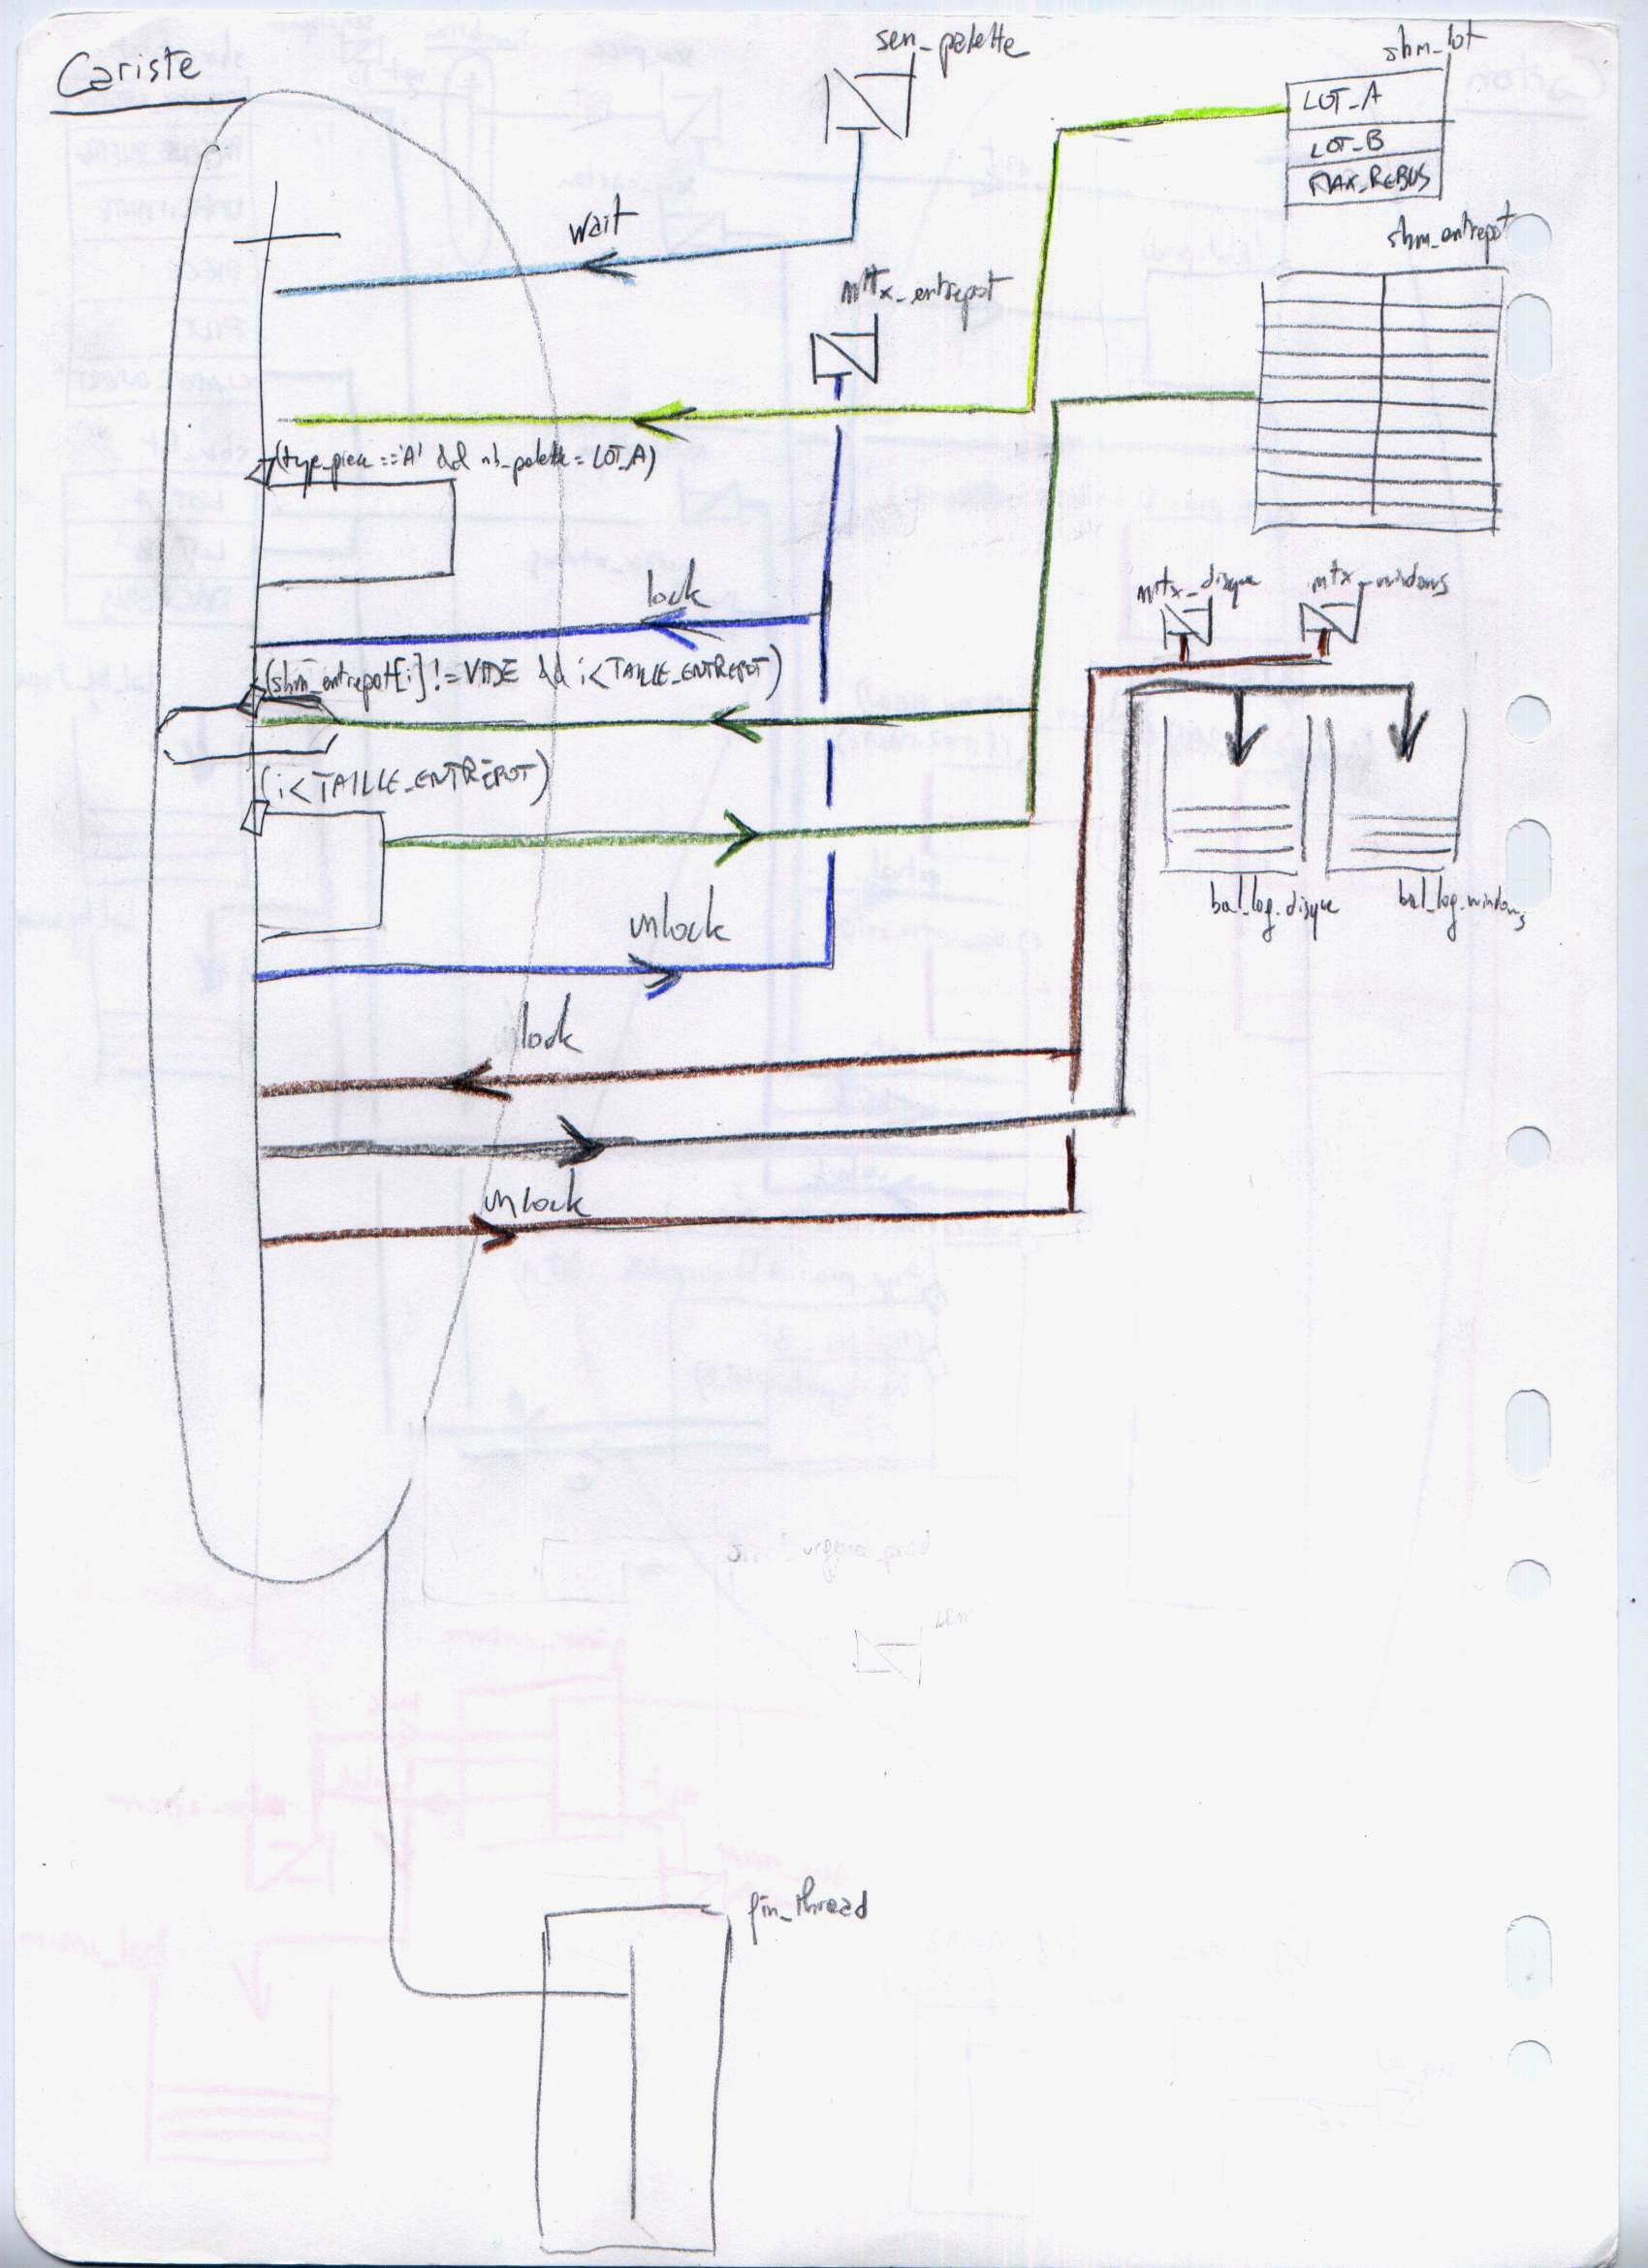 Cariste
sem_palette
shm_lot
LOT_A
LOT_B
MAX_REBUS
wait
shm_entrepot
mtx_entrepot
(type_piece =='A' && nb_palette = LOT_A)
lock
mtx_disque
mtx_windows
(shm_entrepot[i] != VIDE && i<TAILLE_ENTREPOT)
(i<TAILLE_ENTREPOT)
bal_log_disque
bal_log_windows
unlock
lock
unlock
fin_thread